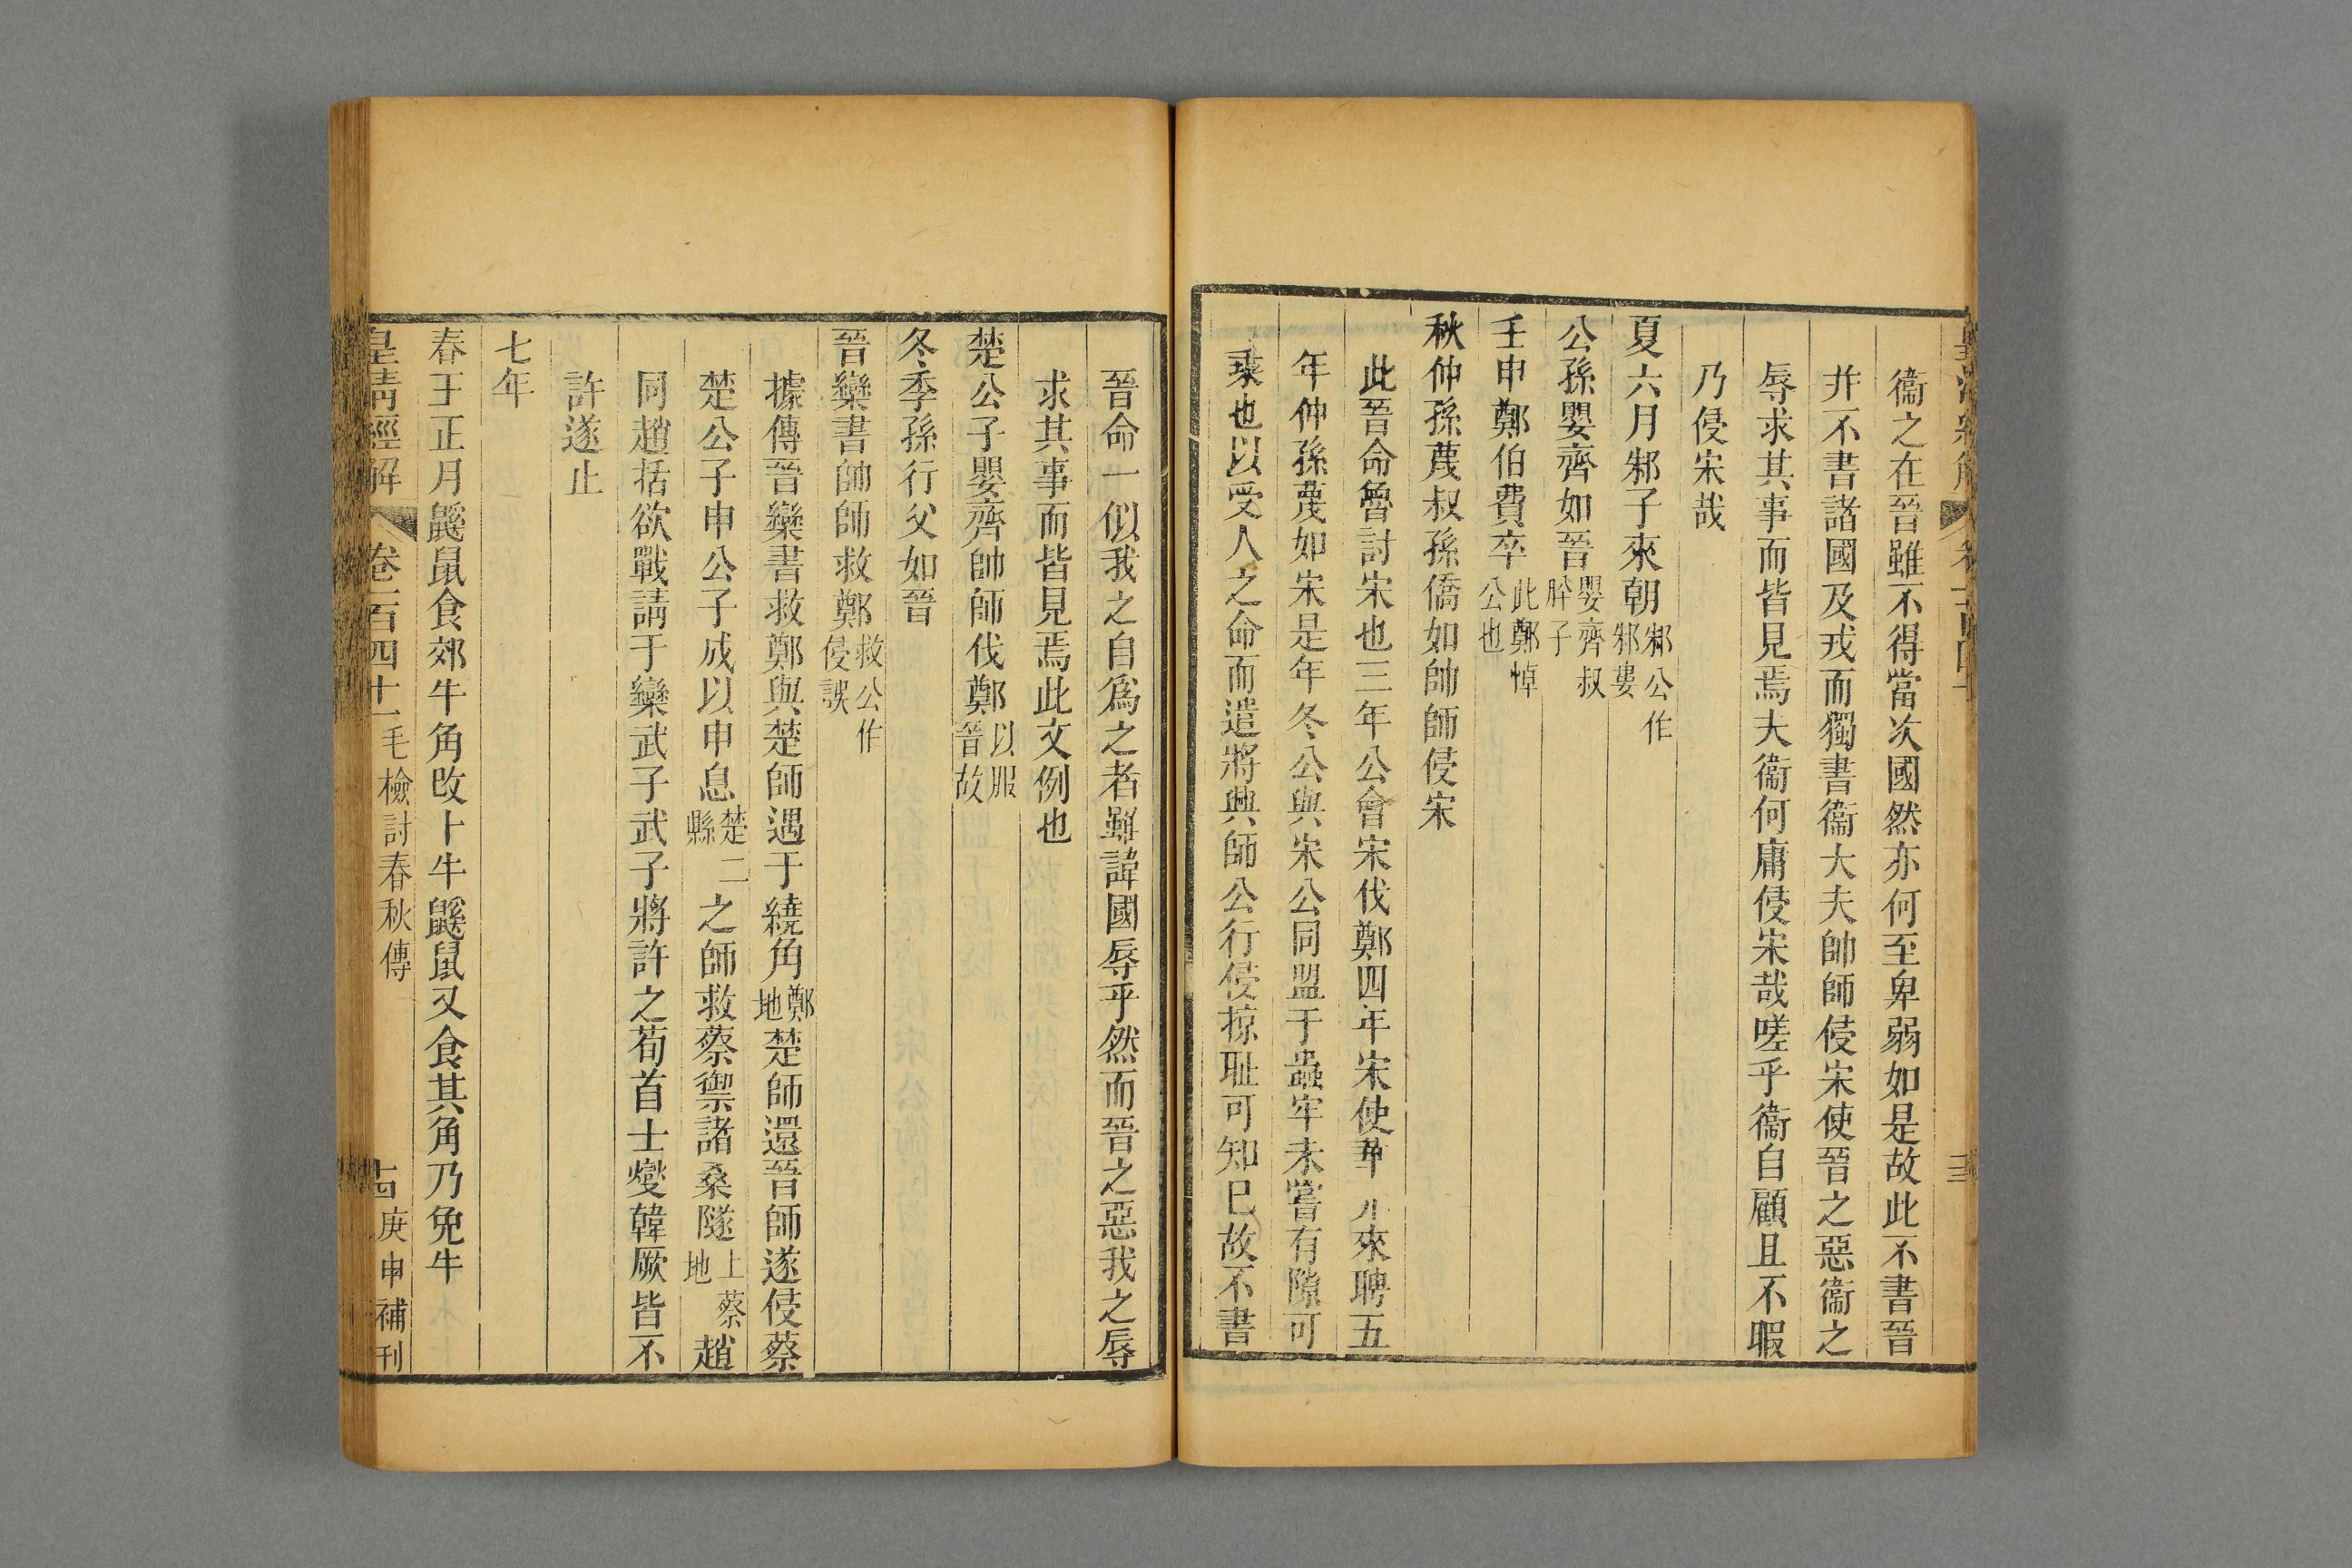 衞之在晉雖不得當次國然亦何至卑弱如是故此不書晉
幷不書諸國及戎而獨書衞大夫帥師侵宋使晉之惡衞之
辱求其事而皆見焉夫衞何庸侵宋哉嗟乎衞自顧且不暇
乃侵宋哉
夏六月邾子來朝邾公作邾婁
公孫嬰齊如晉嬰齊叔肸子
壬申鄭伯費卒此鄭悼公也
秋仲孫蔑叔孫僑如帥師侵宋
此晉命魯討宋也三年公會宋伐鄭四年宋使華來聘五
年仲孫蔑如宋是年冬公與宋公同盟于蟲牢未嘗有隙可
乘也以受人之命而遣將興師公行侵掠耻可知已故不書
晉命一似我之自爲之者雖諱國辱乎然而晉之惡我之辱
求其事而皆見焉此文例也
楚公子嬰齊帥師伐鄭以服晉故
冬季孫行父如晉
晉欒書帥師救鄭救公作侵誤
據傳晉欒書救鄭與楚師遇于繞角鄭地楚師還晉師遂侵蔡
楚公子申公子成以申息楚二縣之師救蔡禦諸桑隧上蔡地趙
同趙括欲戰請于欒武子武子將許之荀首士燮韓厥皆不
許遂止
七年
春王正月鼷鼠食郊牛角改卜牛鼷鼠又食其角乃免牛
皇淸經解 卷一百四十一 毛檢討春秋傳 十四 庚申補刊